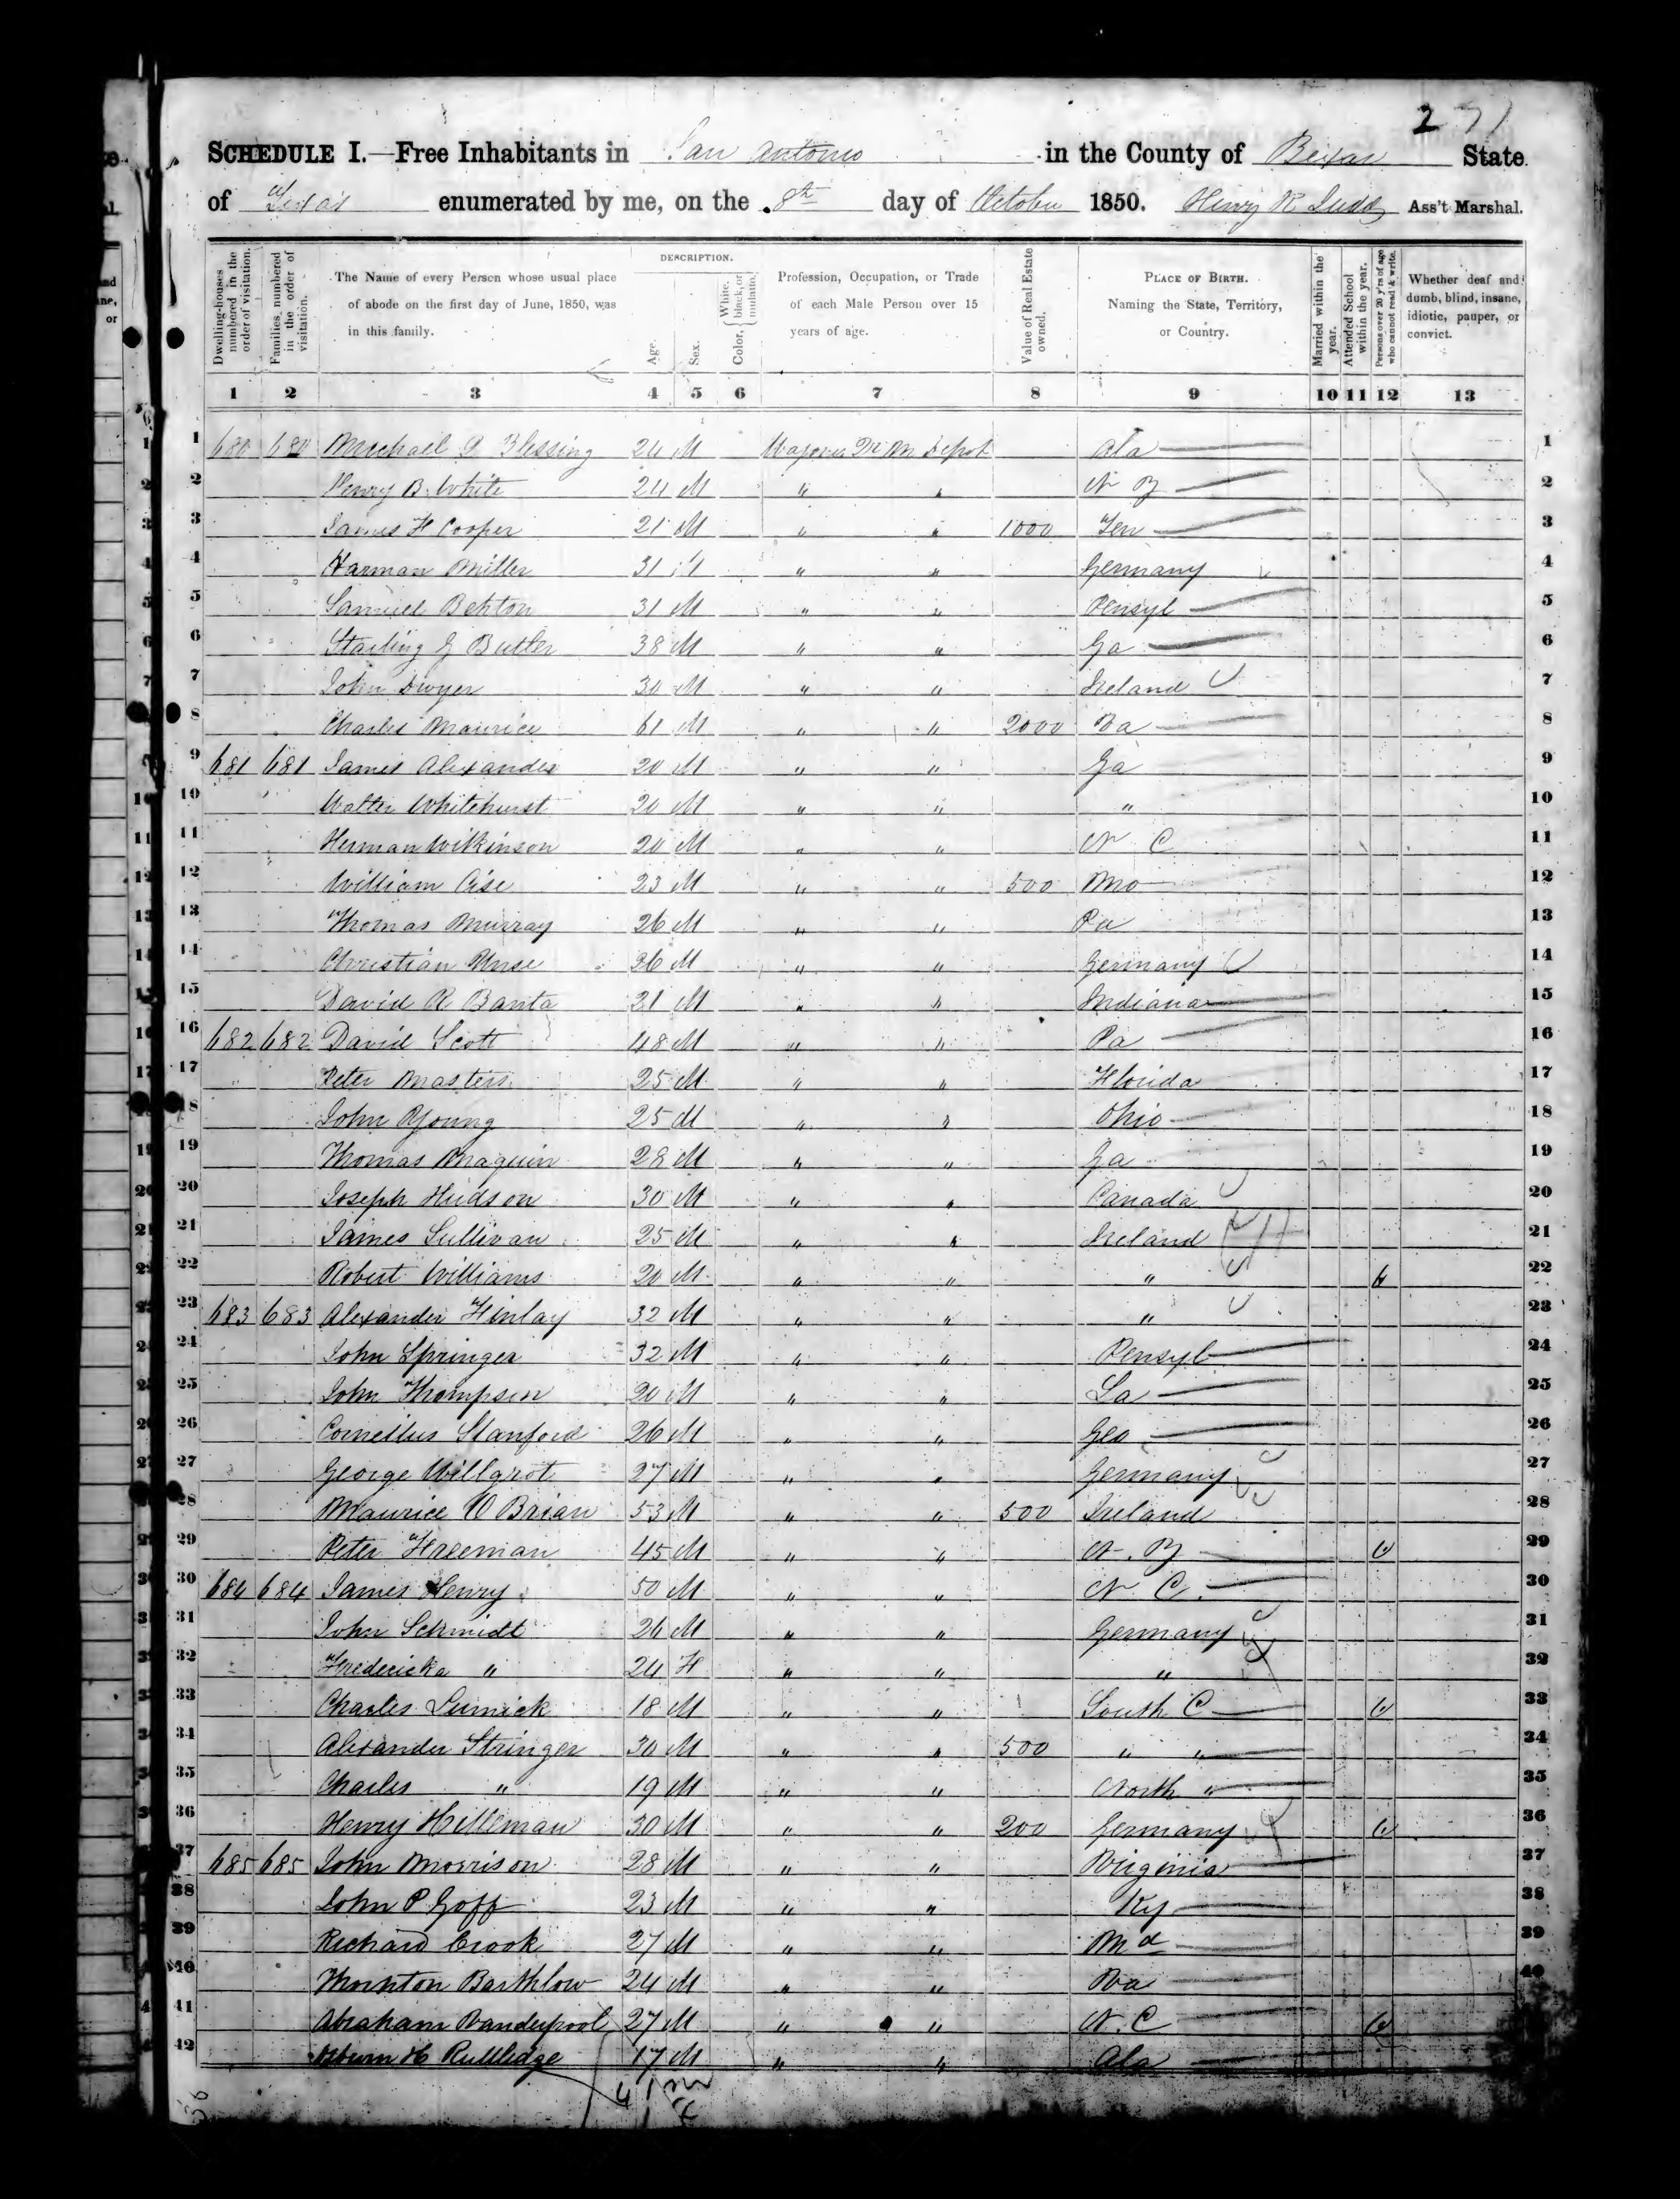 271
SCHEDULE I.—Free Inhabitants in San Antonio in the County of Bexar State
of Texas enumerated by me, on the 8th day of October 1850. Henry K Judd Ass't Marshal.
Dwelling-houses numbered in the order of visitation.
Families numbered in the order of visitation.
The Name of every Person whose usual place of abode on the first day of June, 1850, was in this family.
DESCRIPTION.
Age.
Sex.
Color, White, black, or mulatto.
Profession, Occupation, or Trade of each Male Person over 15 years of age.
Value of Real Estate owned.
PLACE OF BIRTH. Naming the State, Territory, or Country.
Married within the year.
Attended School within the year.
Persons over 20 y'rs of age who cannot read & write.
Whether deaf and dumb, blind, insane, idiotic, pauper, or convict.
1 2 3 4 5 6 7 8 9 10 11 12 13
1 680 680 Michael D Blessing 24 M Depot Ala 1
2 Henry B. White 24 M " " N Y 2
3 James H Cooper 21 M " " 1000 Ten 3
4 Harman Miller 31 M " " Germany 4
5 Samuel 31 M " " Pensyl 5
6 Starling G Butler 38 M " " Ga 6
7 John Dwyer 30 M " " Ireland 7
8 Charles Maurice 61 M " " 2000 Va 8
9 681 681 James Alexander 20 M " " Ga 9
10 Walter Whitehurst 20 M " " " 10
11 Herman Wilkinson 20 M " " N C 11
12 William Cise 23 M " " 500 Mo 12
13 Thomas Murray 26 M " " Pa 13
14 Christian 26 M " " Germany 14
15 David R Banta 21 M " " Indiana 15
16 682 682 David Scott 48 M " " Pa 16
17 Peter Masters 25 M " " Florida 17
18 John Young 25 M " " Ohio 18
19 Thomas Maguin 28 M " " Ga 19
20 Joseph Hudson 30 M " " Canada 20
21 James Sullivan 25 M " " Ireland 21
22 Robert Williams 20 M " " " 22
23 683 683 Alexander Finlay 32 M " " " 23
24 John Springer 32 M " " Pensyl 24
25 John Thompson 20 M " " La 25
26 Cornelius Stanford 26 M " " Geo 26
27 George Willgrot 27 M " " Germany 27
28 Maurice O Brian 53 M " " 500 Ireland 28
29 Peter Freeman 45 M " " N. Y 29
30 684 684 James Henry 50 M " " N C. 30
31 John Schmidt 26 M " " Germany 31
32 Fredericka " 24 F " " " 32
33 Charles 18 M " " South C 33
34 Alexander Stringer 30 M " " 500 " " 34
35 Charles " 19 M " " North " 35
36 Henry Hilleman 30 M " " 200 Germany 36
37 685 685 John Morrison 28 M " " Virginia 37
38 John P Goff 23 M " " Ky 38
39 Richard Crook 27 M " " Md 39
40 Thornton Barthlow 24 M " " Va 40
41 Abraham Vanderpool 27 M " " N. C
42 H Rutledge 17 M " " Ala
41 m
1 f